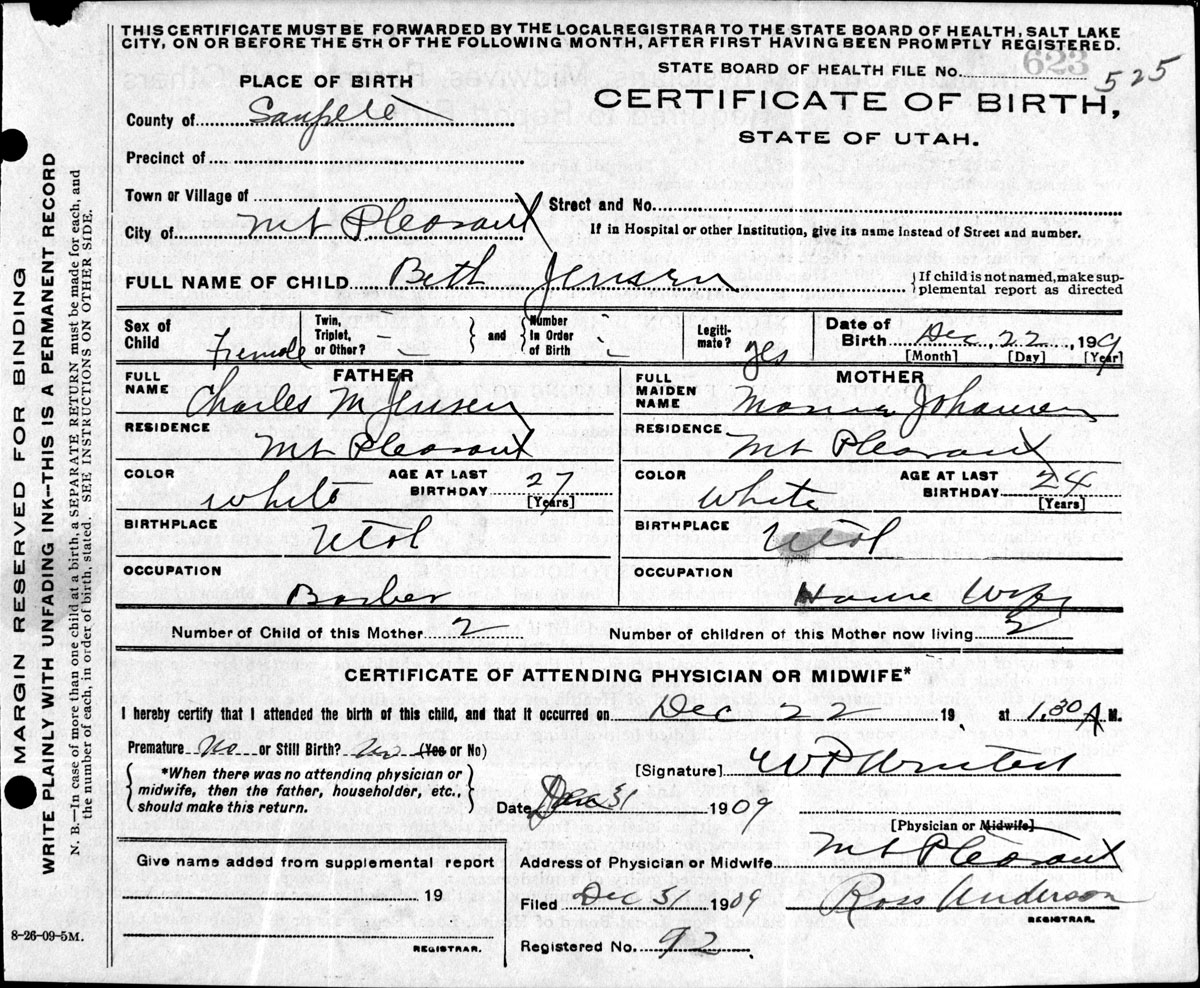 THIS CERTIFICATE MUST BE FORWARDED BY THE LOCAL REGISTRAR TO THE STATE BOARD OF HEALTH, SALT LAKE
CITY, ON OR BEFORE THE 5TH OF THE FOLLOWING MONTH, AFTER FIRST HAVING BEEN PROMPTLY REGISTERED.
STATE BOARD OF HEALTH FILE No. 623 525
PLACE OF BIRTH
CERTIFICATE OF BIRTH,
STATE OF UTAH.
County of Sanpete
Precinct of
Town or Village of
Street and No.
City of Mt Pleasant
If in Hospital or other Institution, give its name instead of Street and number.
FULL NAME OF CHILD Beth Jensen
{If child is not named, make sup-
plemental report as directed
Sex of Child Female
Twin, Triplet, or Other?
and
Number In Order of Birth
Legiti-mate? yes
Date of Birth Dec 22, 1909
[Month] [Day] [Year]
FATHER
FULL NAME Charles M Jensen
RESIDENCE Mt Pleasant
COLOR White
AGE AT LAST BIRTHDAY 27 [Years]
BIRTHPLACE Utah
OCCUPATION Barber
MOTHER
FULL MAIDEN NAME Johansen
RESIDENCE Mt Pleasant
COLOR White
AGE AT LAST BIRTHDAY 24 [Years]
BIRTHPLACE Utah
OCCUPATION House Wife
Number of Child of this Mother 2
Number of children of this Mother now living 2
CERTIFICATE OF ATTENDING PHYSICIAN OR MIDWIFE*
I hereby certify that I attended the birth of this child, and that it occurred on Dec 22 19 , at 1.30 A M.
Premature No or Still Birth? No (Yes or No)
{*When there was no attending physician or
midwife, then the father, householder, etc.,
should make this return.}
[Signature] W P
Date Dec 31 1909
[Physician or Midwife]
Give name added from supplemental report
19
REGISTRAR.
Address of Physician or Midwife Mt Pleasant
Filed Dec 31 1909 Ross Anderson
REGISTRAR.
Registered No. 92
8-26-09-5M.
MARGIN RESERVED FOR BINDING
WRITE PLAINLY WITH UNFADING INK—THIS IS A PERMANENT RECORD
N. B.—In case of more than one child at a birth, a SEPARATE RETURN must be made for each, and
the number of each, in order of birth, stated. SEE INSTRUCTIONS ON OTHER SIDE.